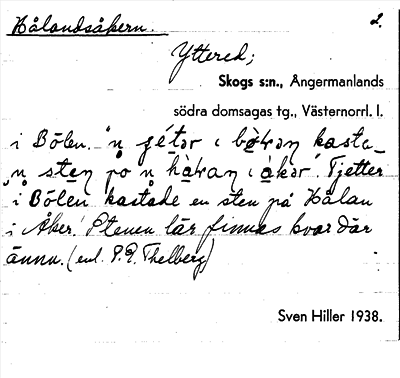 Hålandsåkern. 2.
Yttered;
Skogs s:n., Ångermanlands
södra domsagas tg., Västernorrl. l.
i Bölen. "n jétər ı bø̀ɬan kasta_
n sten på n hàɬan ı åkər". "Tjetter
i Bölen kastade en sten på Hålan
i Åker." Stenen lär finnas kvar där
ännu. (enl. P.P. Thelberg)
Sven Hiller 1938.